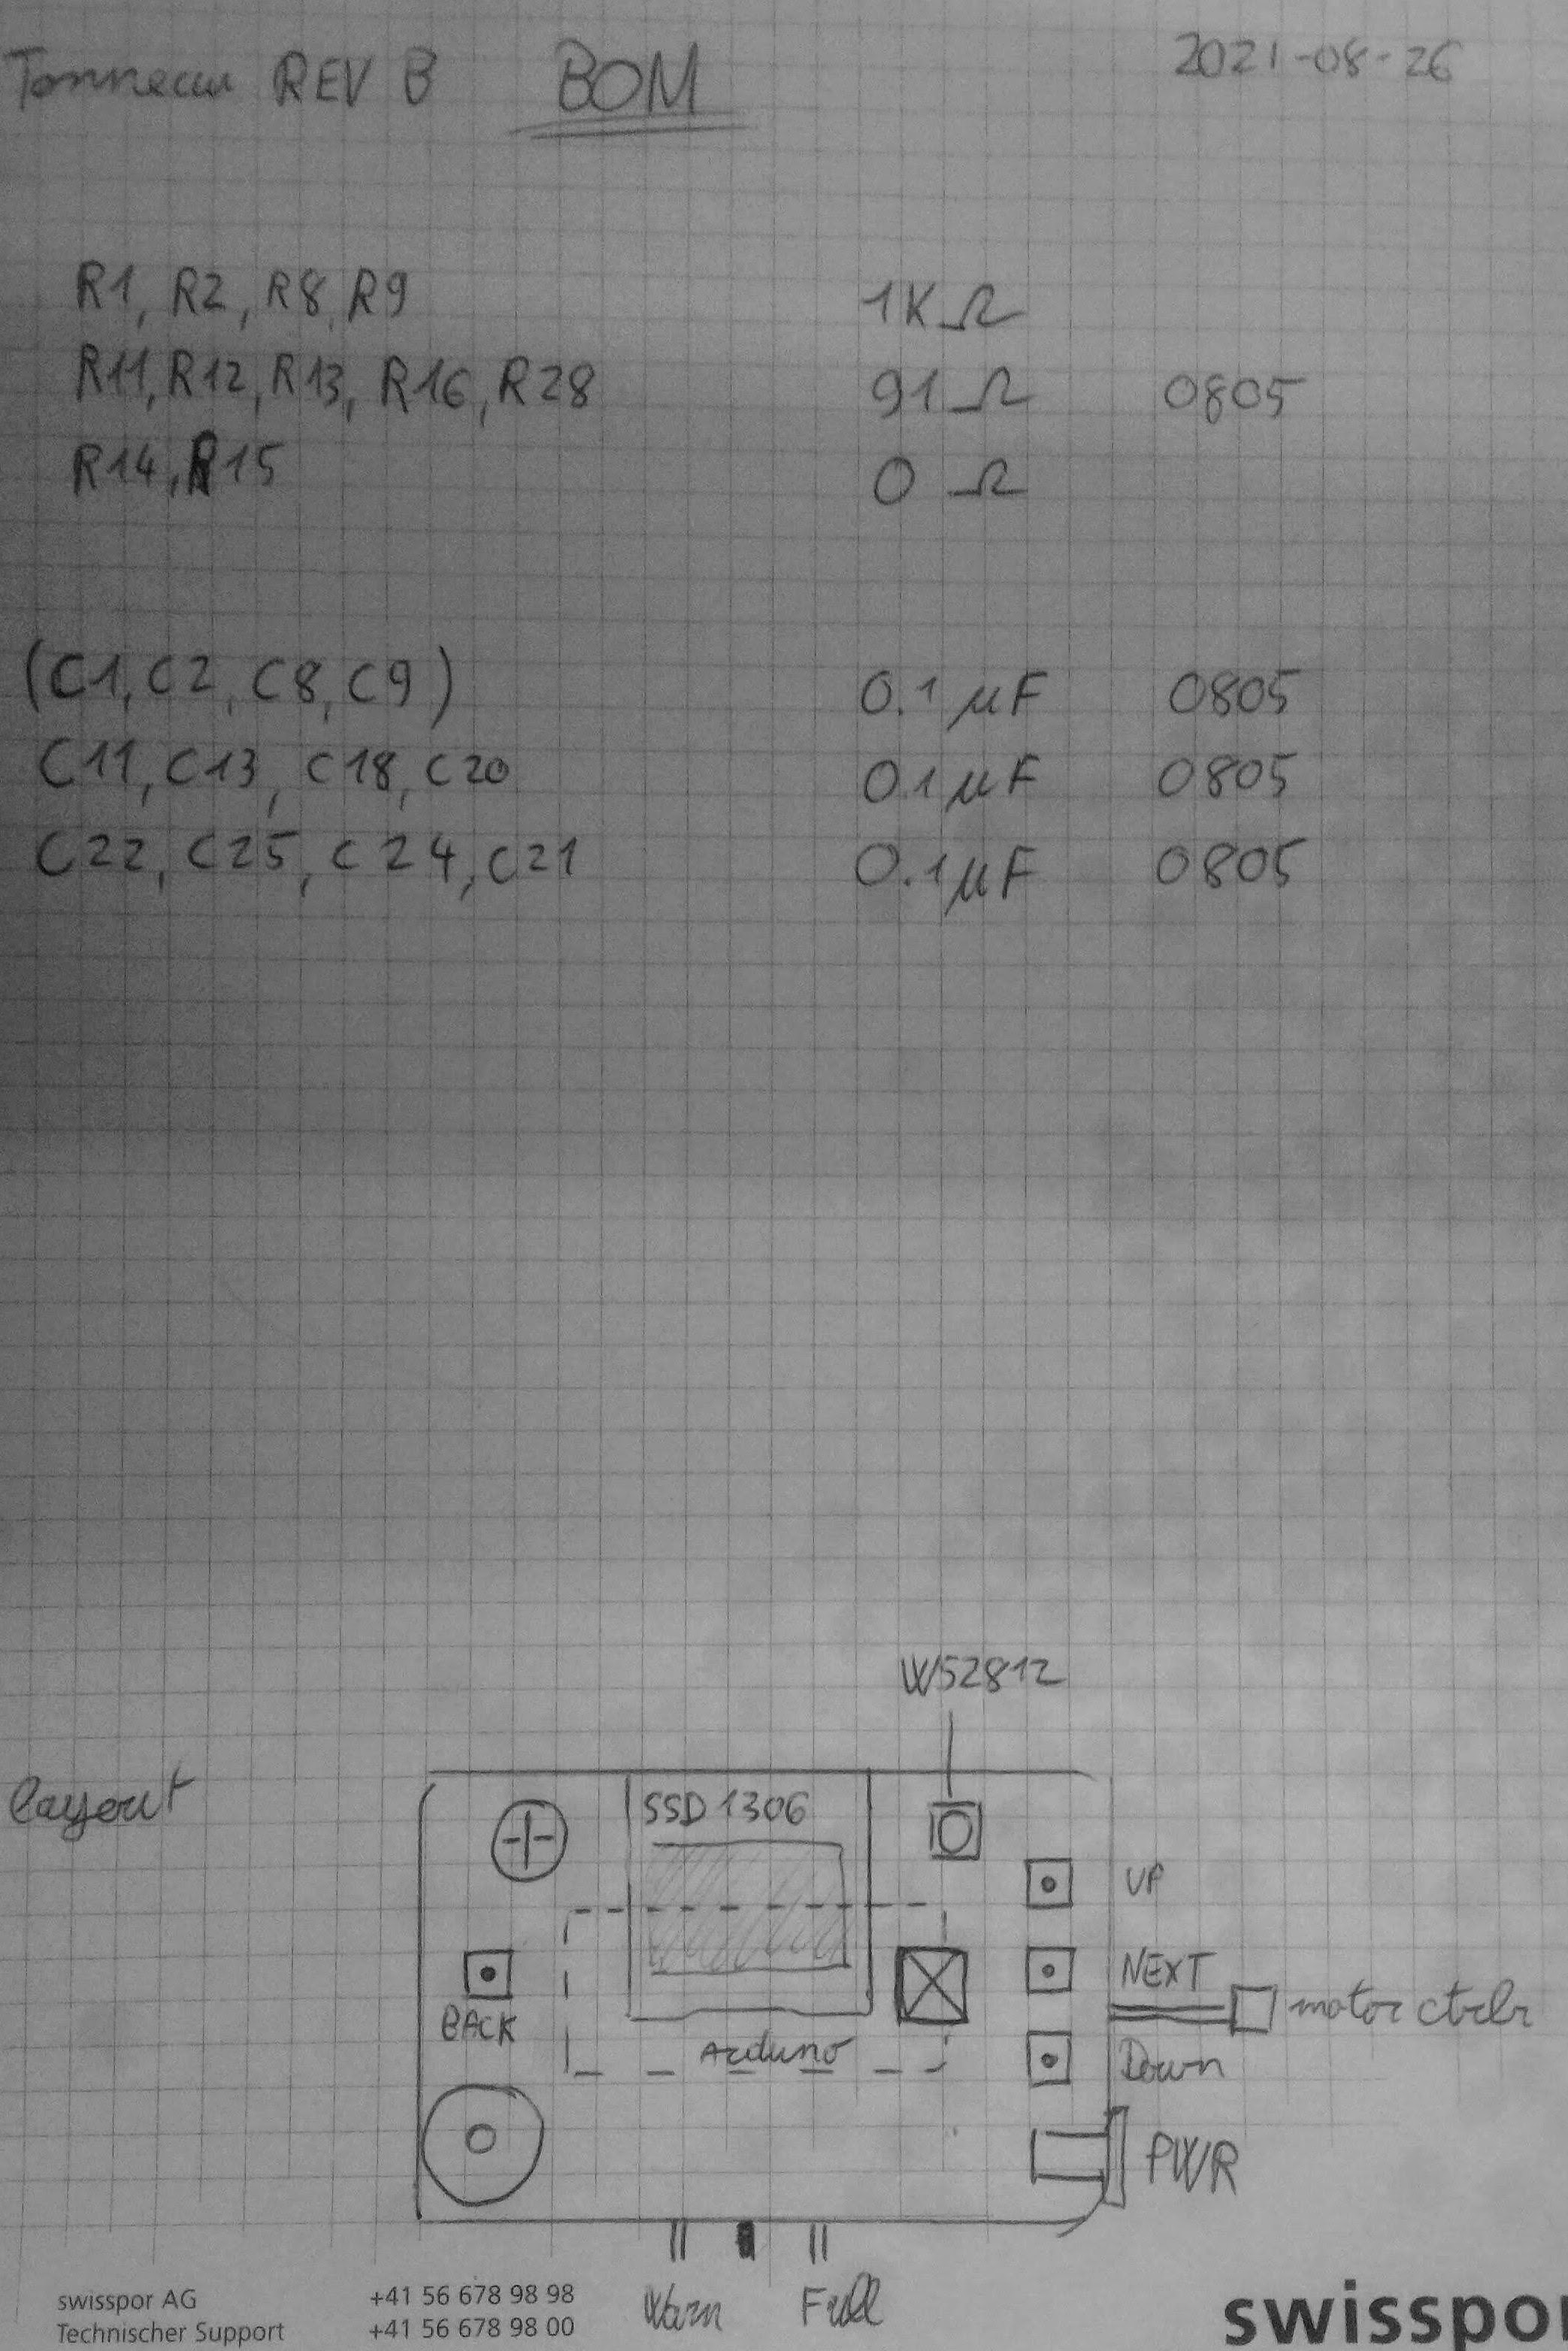 Tonneau REV B BOM 2021-08-26
R1, R2, R8, R9 1KΩ
R11, R12, R13, R16, R28 91Ω 0805
R14, R15 0 Ω
(C1, C2, C8, C9) 0.1 µF 0805
C11, C13, C18, C20 0.1 µF 0805
C22, C25, C24, C21 0.1µF 0805
WS2812
layout
SSD 1306
UP
NEXT
BACK
motor ctrlr
Arduino
Down
PWR
Warn Full
swisspor AG +41 56 678 98 98
Technischer Support +41 56 678 98 00
swisspor